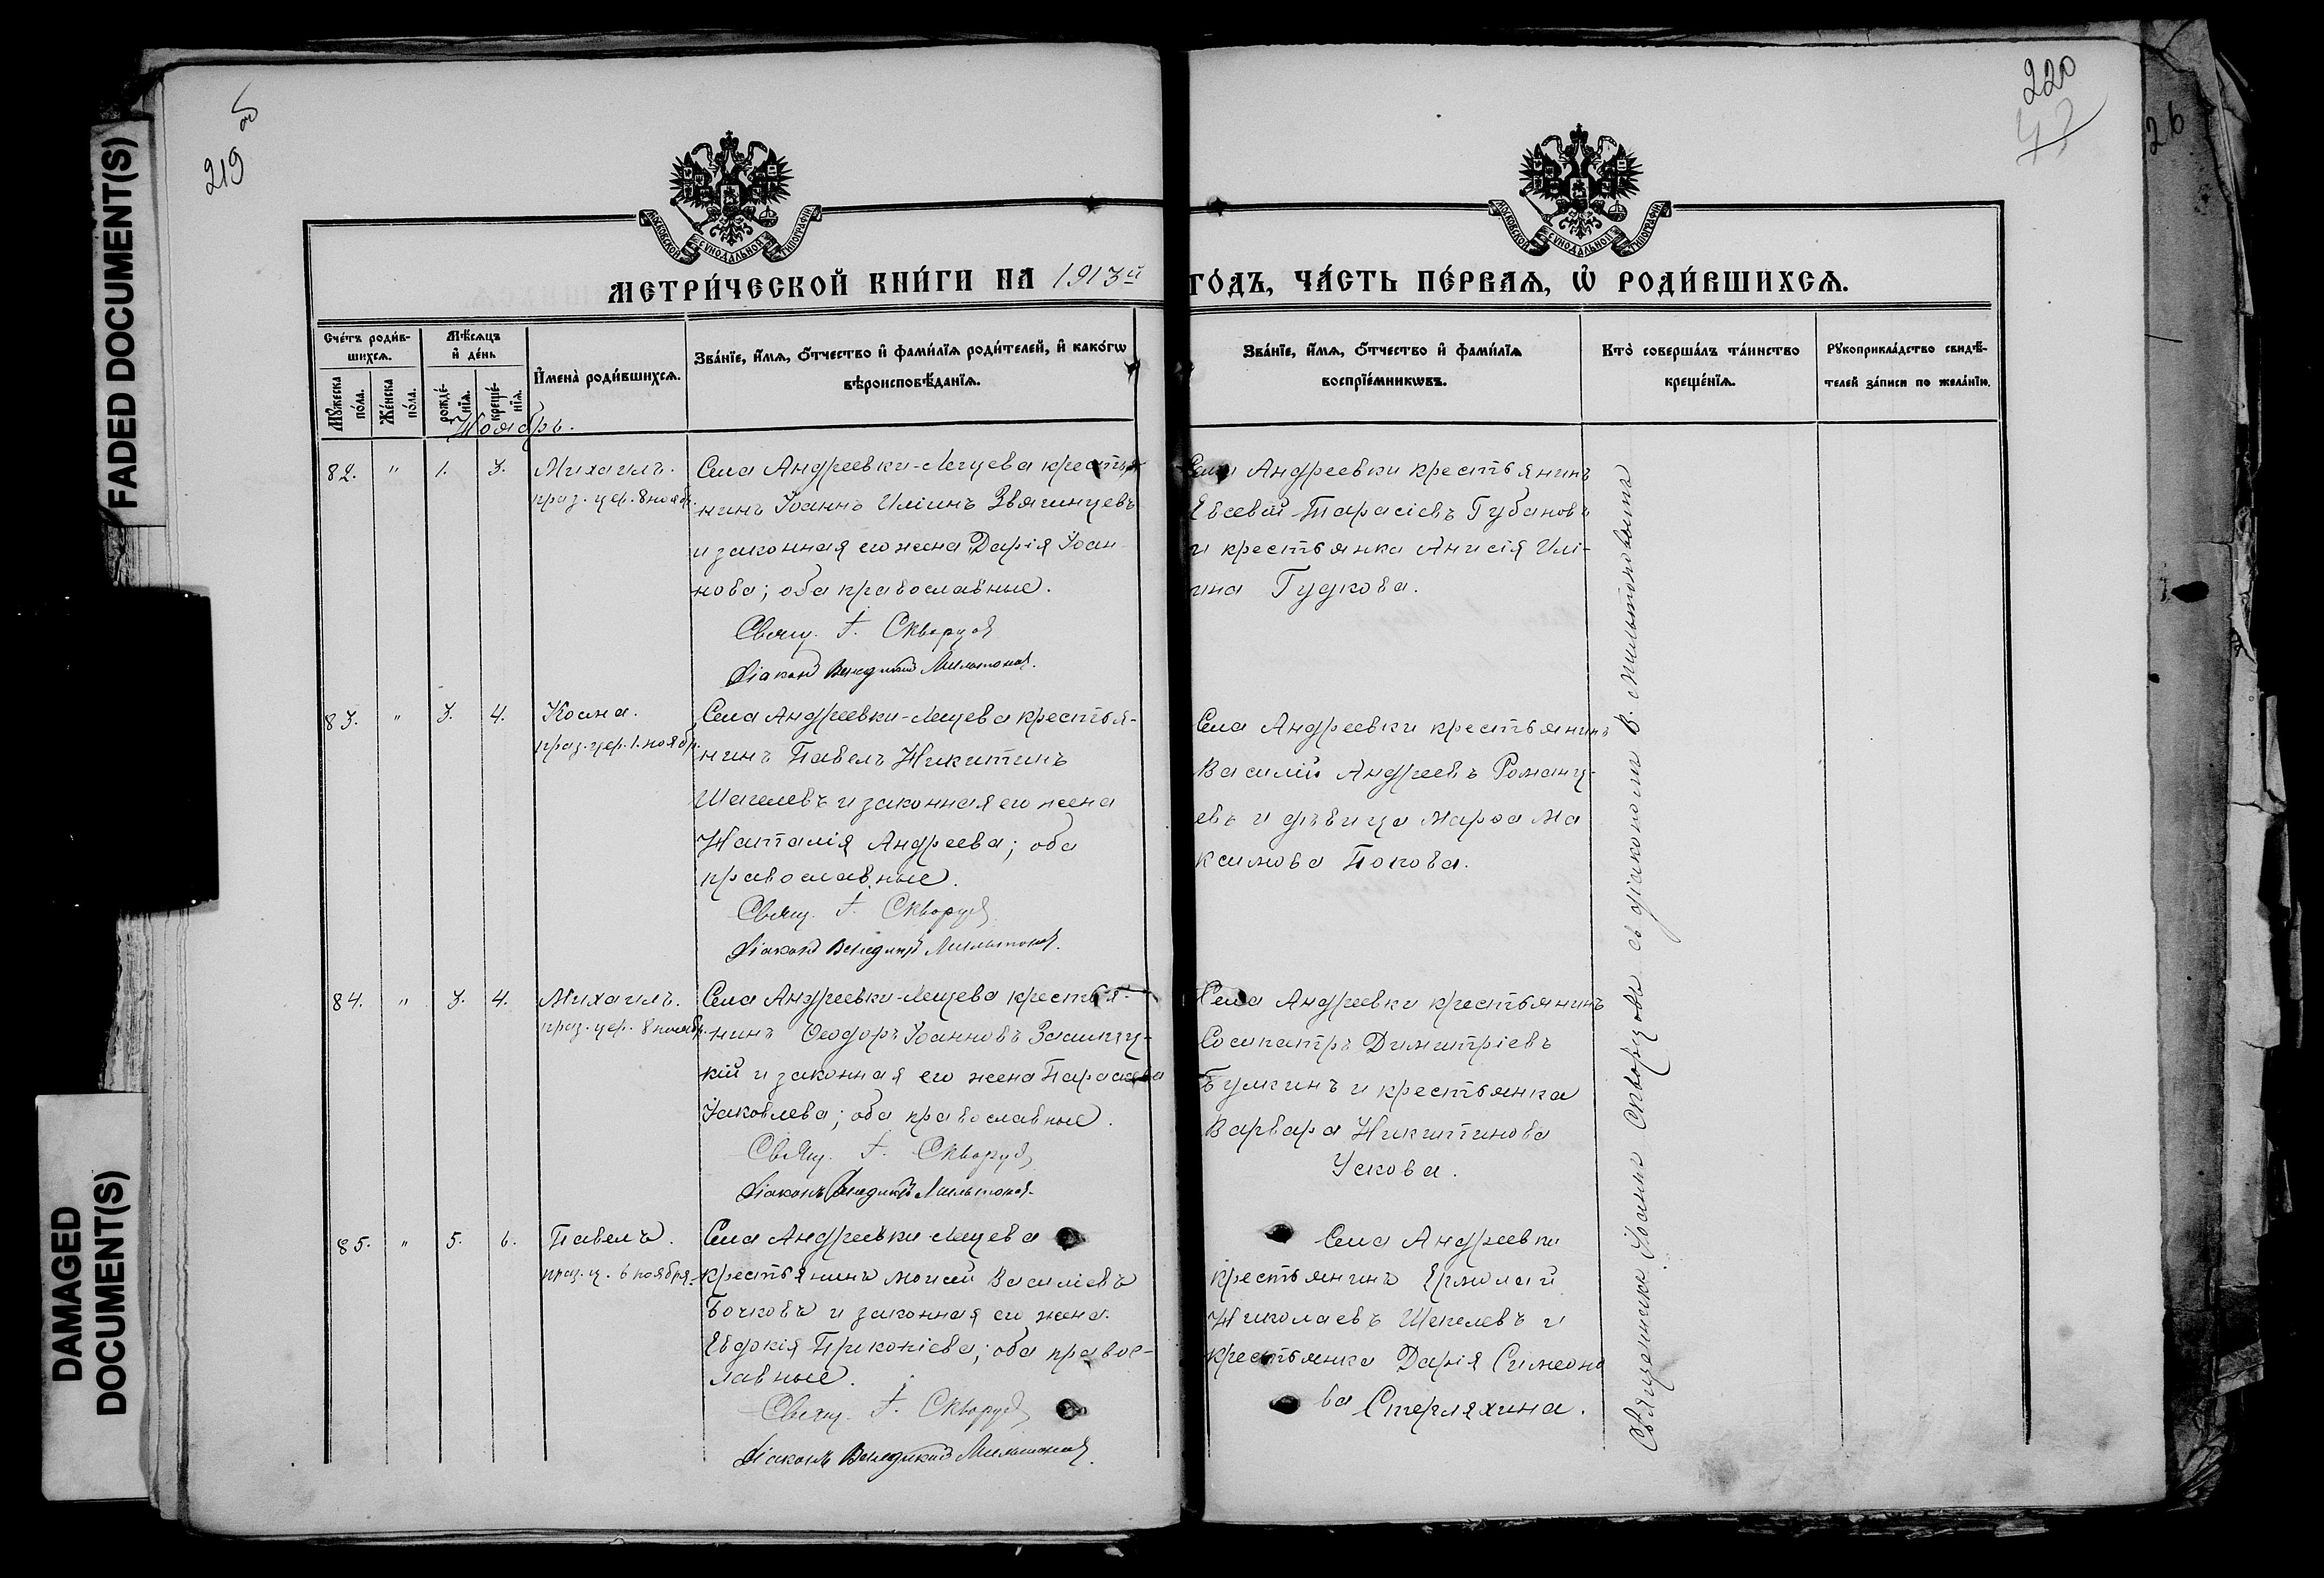 FADED DOCUMENT(S)
DAMAGED
DOCUMENT(S)
219
об
220
47
26
МОСКОВСКОЙ СѴНОДАЛЬНОЙ ТИПОГРАФІИ
МОСКОВСКОЙ СѴНОДАЛЬНОЙ ТИПОГРАФІИ
МЕТРИ́ЧЕСКОЙ КНИ́ГИ НА 1913й ГО́ДЪ, ЧА́СТЬ ПЕ́РВАѦ, Ѡ҆ РОДИ́ВШИХСѦ.
Сче́тъ роди́в-
шихсѧ.
Мꙋ́жеска
по́ла.
Же́нска
по́ла.
Мѣ́сѧцъ
и҆ де́нь
рожде́-
нїѧ.
креще́-
нїѧ.
И҆мена̀ роди́вшихсѧ.
Зва́нїе, и҆́мѧ, ѻ҆́тчество и҆ фами́лїѧ роди́телей, и҆ како́гѡ
вѣроисповѣ́данїѧ.
Зва́нїе, и҆́мѧ, ѻ҆́тчество и҆ фами́лїѧ
воспрїе́мникѡвъ.
Кто̀ соверша́лъ та́инство
креще́нїѧ.
Рꙋкоприкла́дство свидѣ́-
телей за́писи по жела́нїю.
Ноябрь.
82. " 1. 3. Михаилъ.
праз. цер. 8 ноябр.
Села Андреевки-Лещева крестья-
нинъ Іоаннъ Иліинъ Звягинцевъ
и законная его жена Дарія Іоан-
нова; оба православные.
Свящ. І. Скворцов
Діаконъ Венедиктъ Мильтонов.
Села Андреевки крестьянинъ
Евсевій Тарасіевъ Губановъ
и крестьянка Анисія Илі-
ина Гудкова.
83. " 3. 4. Косма.
праз. цер. 1. ноябр.
Села Андреевки-Лещева крестья-
нинъ Павелъ Никитинъ
Шепелевъ и законная его жена
Наталія Андреева; оба
православные.
Свящ. І. Скворцов
Діаконъ Венедиктъ Мильтонов.
Села Андреевки крестьянинъ
Василій Андреевъ Романц-
евъ и дѣвица Марѳа Ма
ксимова Попова.
84. " 3. 4. Михаилъ.
праз. цер. 8 ноябр.
Села Андреевки-Лещева крестья-
нинъ Ѳеодоръ Іоанновъ
кій и законная его жена Параскева
Іаковлева; оба православные.
Свящ. І. Скворцов
Діаконъ Венедиктъ Мильтонов.
Села Андреевки крестьянинъ
Сосипатръ Димитріевъ
Булкинъ и крестьянка
Варвара Никитинова
Ускова.
85. " 5. 6. Павелъ.
праз. ц. 6 ноября.
Села Андреевки Лещева
крестьянинъ Моисей Василіевъ
Бочковъ и законная его жена
Евдокія Прокопіева; оба правос-
лавные.
Свящ. І. Скворцов
Діаконъ Венедиктъ Мильтонов.
Села Андреевки
крестьянинъ Ермолай
Николаевъ Шепелевъ и
крестьянка Дарія Симеоно
ва Стерляхина.
Священникъ Іоаннъ Скворцовъ съ діакономъ В. Мильтоновымъ